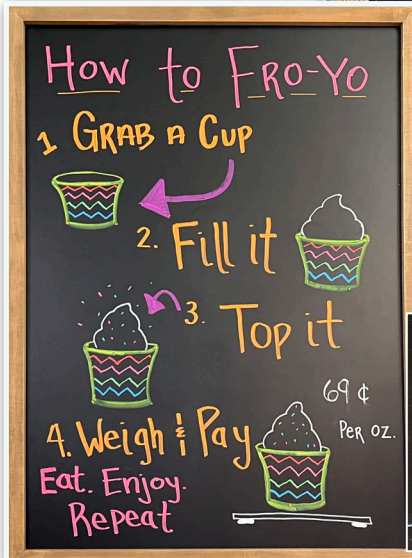 How to Fro-Yo
1 Grab a Cup
2. Fill it
3. Top it
69 ¢
Per oz.
4. Weigh & Pay
Eat. Enjoy.
Repeat